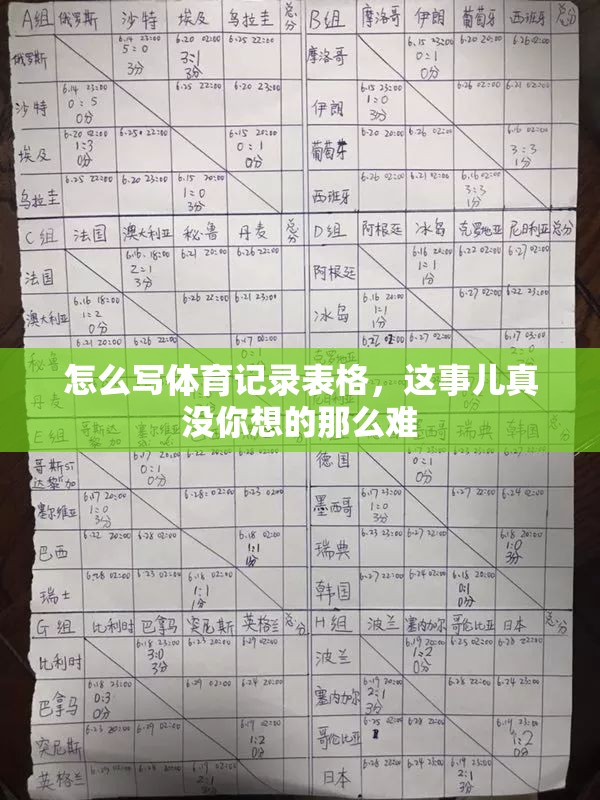 A组 俄罗斯 沙特 埃及 乌拉圭 总分
俄罗斯 6.14 23:00 6.20 02:00 6.25 22:00
5:0 3:1
3分 3分
沙特 6.14 23:00 6.25 22:00 6.20 23:00
0:5
0分
埃及 6.20 02:00 6.25 22:00 6.15 20:00
1:3 0:1
0分 0分
乌拉圭 6.25 22:00 6.20 23:00 6.15 20:00
1:0
3分
B组 摩洛哥 伊朗 葡萄牙 西班牙 总分
摩洛哥 6.15 23:00 6.20 20:00 6.26 02:00
0:1
0分
伊朗 6.15 23:00 6.26 02:00 6.21 02:00
1:0
3分
葡萄牙 6.20 20:00 6.26 02:00 6.16 02:00
3:3
1分
西班牙 6.26 02:00 6.21 02:00 6.16 02:00
3:3
1分
C组 法国 澳大利亚 秘鲁 丹麦 总分
法国 6.16 18:00 6.21 20:00 6.26 22:00
2:1
3分
澳大利亚 6.16 18:00 6.26 22:00 6.21 23:00
1:2
0分
秘鲁 6.21 20:00 6.17 00:00
D组 阿根廷 冰岛 克罗地亚 尼日利亚 总分
阿根廷 6.16 20:00 6.22 02:00 6.27 02:00
1:1
1分
冰岛 6.16 20:00 6.27 02:00 6.22 23:00
1:1
1分
克罗地亚 6.27 02:00 6.17 03:00
怎么写体育记录表格，这事儿真
没你想的那么难
E组
哥斯达黎加 6.17 20:00
0:1
0分
塞尔维亚 6.17 20:00 6.28 02:00 6.23 02:00
1:0
3分
巴西 6.22 20:00 6.28 02:00 6.18 02:00
1:1
1分
瑞士 6.28 02:00 6.23 02:00 6.18 02:00
1:1
1分
瑞典 韩国
德国 0:1
0分
墨西哥 6.17 23:00 6.27 22:00
1:0
3分
瑞典 6.23 23:00 6.27 22:00 6.18 20:00
1:0
3分
韩国 6.27 22:00 6.18 20:00
0:1
0分
G组 比利时 巴拿马 突尼斯 英格兰 总分
比利时 6.18 23:00 6.23 20:00 6.29 02:00
3:0
3分
巴拿马 6.18 23:00 6.29 02:00 6.24 20:00
0:3
0分
突尼斯 6.23 20:00 6.29 02:00
1:2
0分
英格兰
2:1
H组 波兰 塞内加尔 哥伦比亚 日本 总分
波兰 6.19 20:00 6.25 02:00 6.28 22:00
1:2
0分
塞内加尔 6.19 20:00 6.28 22:00 6.24 23:00
2:1
3分
哥伦比亚 6.25 02:00 6.28 22:00
1:2
0分
日本 6.28 22:00 6.24 23:00
2:1
3分